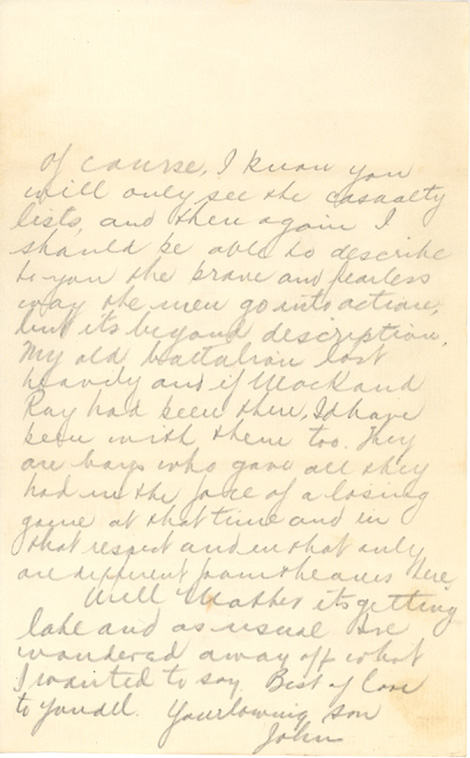 Of course, I know you
will only see the casualty
lists, and then again I
should be able to describe
to you the brave and fearless
way the men go into action,
but its beyond description.
My old battalion lost
heavily and if Mack and
Ray had been there, Id have
been with them too. They
are boys who gave all they
had in the face of a losing
game at that time and in
that respect and in that only
are different from the ones here
Well Mother its getting
late and as usual Ive
wandered away off what
I wanted to say. Best of love
to you all. Your loving son
John